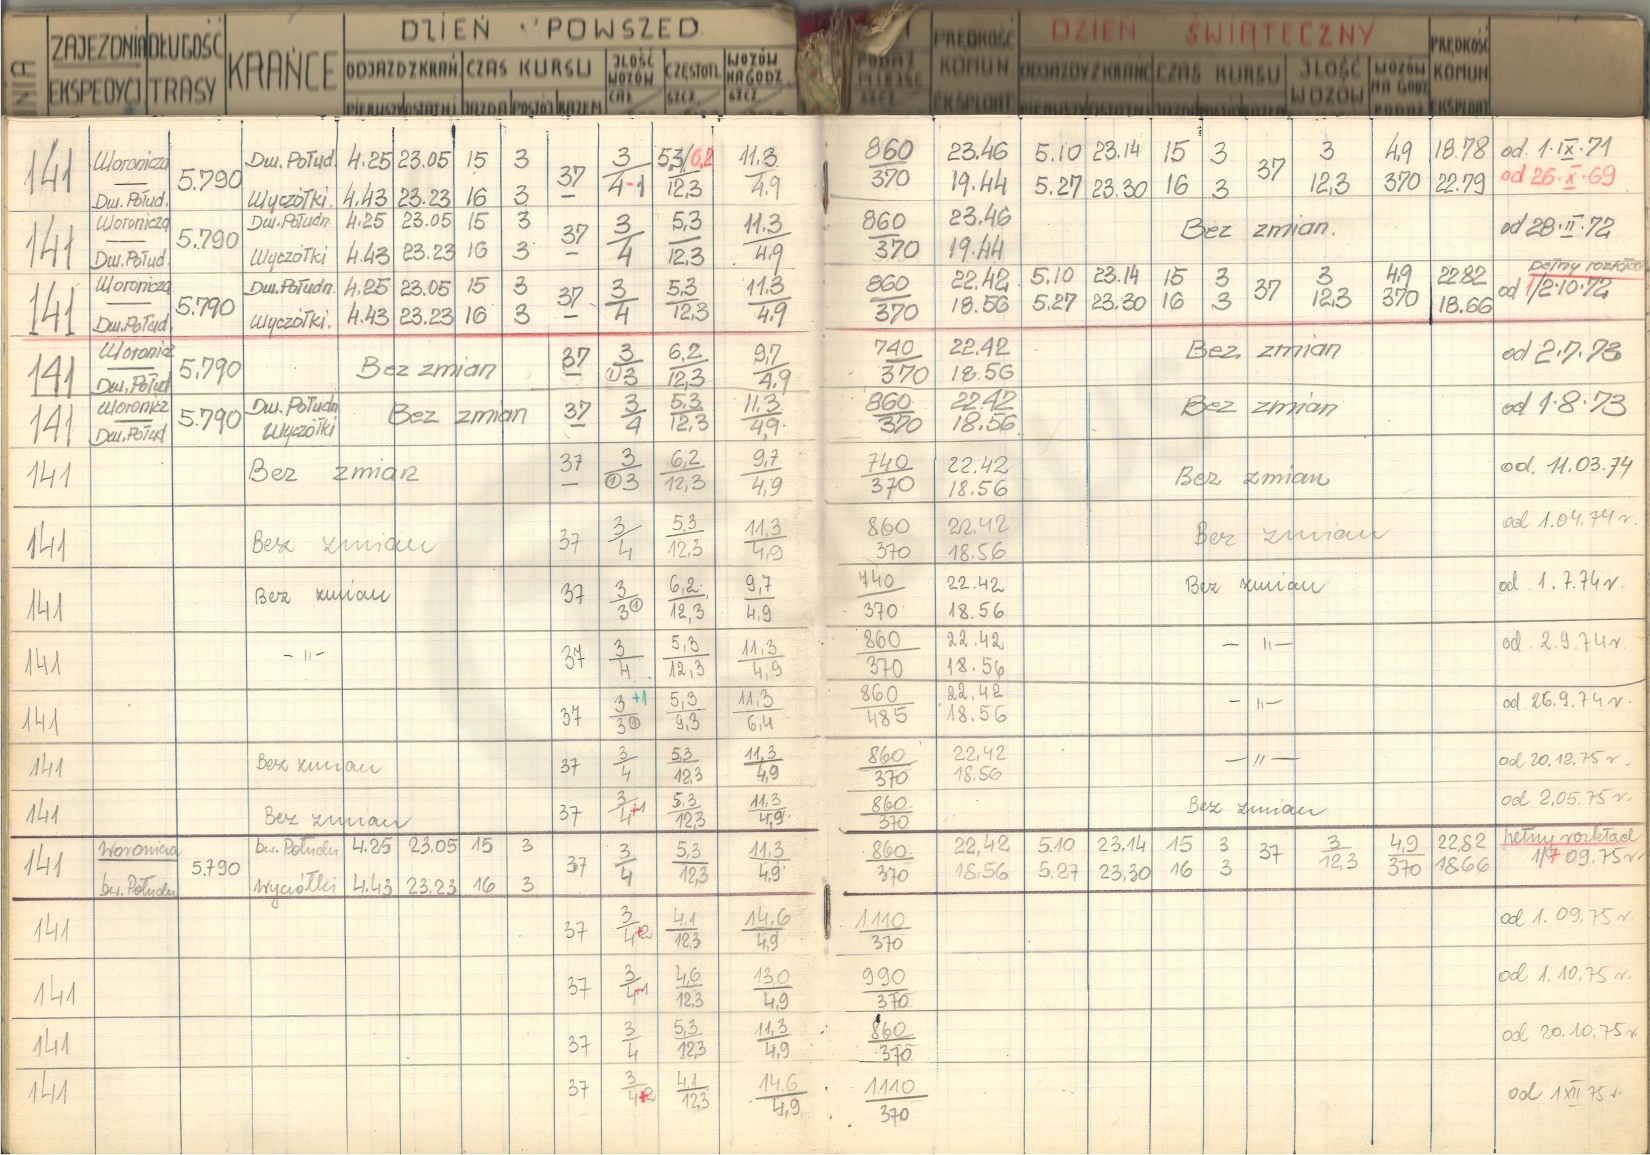 ZAJEZDNIA DŁUGOŚĆ KRAŃCE DZIEŃ POWSZED PRĘDKOŚĆ DZIEŃ ŚWIĄTECZNY PRĘDKOŚĆ
NIA EKSPEDYCJ TRASY ODJAZD Z KRAŃ. CZAS KURSU JLOŚĆ WOZÓW CAŁ. CZĘSTOTL. SZCZ. WOZÓW NA GODZ. SZCZ. PODAŻ MIEJSC SZCZ. KOMUN ODJAZDY Z KRAŃC CZAS KURSU JLOŚĆ WOZÓW WOZÓW NA GODZ KOMUN
PIERWSZY OSTATNI JAZDA POSTÓJ RAZEM EKSPLOAT. PIERWSZY OSTATNI JAZDA RAZEM PODAŻ EKSPLOAT
141 Woronicza 5.790 Dw. Połud. 4.25 23.05 15 3 37 3 5,3/6,2 11.3 860 23.46 5.10 23.14 15 3 37 3 4,9 18.78 od 1.IX.71
Dw. Połud. Wyczółki. 4.43 23.23 16 3 – 4-1 12,3 4.9 370 19.44 5.27 23.30 16 3 12,3 370 22.79 od 26.X.69
141 Woronicza 5.790 Dw. Połudn. 4.25 23.05 15 3 37 3 5,3 11.3 860 23.46 Bez zmian. od 28.II.72
Dw. Połud. Wyczółki 4.43 23.23 16 3 – 4 12,3 4,9 370 19.44
141 Woronicza 5.790 Dw. Połudn. 4.25 23.05 15 3 37 3 5,3 11.3 860 22,42 5.10 23.14 15 3 37 3 4,9 22.82 pełny rozkład
Dw. Połud. Wyczółki. 4.43 23.23 16 3 – 4 12,3 4,9 370 18.56 5.27 23.30 16 3 12,3 370 18.66 od 1/2.10.72
141 Woronicz 5.790 Bez zmian 37 3 6,2 9,7 740 22.42 Bez zmian od 2.7.73
Dw. Połud – ①3 12,3 4,9 370 18.56
141 Woronicz 5.790 Dw. Połudn Bez zmian 37 3 5,3 11.3 860 22.42 Bez zmian od 1.8.73
Dw. Połud Wyczółki – 4 12,3 4,9 370 18.56
141 Bez zmian 37 3 6,2 9,7 740 22.42 Bez zmian od. 11.03.74
– ①3 12,3 4,9 370 18.56
141 Bez zmian 37 3 5,3 11,3 860 22.42 Bez zmian od 1.04.74 r.
4 12,3 4,9 370 18.56
141 Bez zmian 37 3 6,2 9,7 740 22.42 Bez zmian od. 1.7.74 r.
3① 12,3 4,9 370 18.56
141 – " – 37 3 5,3 11,3 860 22.42 – " – od. 2.9.74 r.
4 12,3 4,9 370 18.56
141 37 3 +1 5,3 11,3 860 22.42 – " – od 26.9.74 r.
3① 9,3 6,4 485 18.56
141 Bez zmian 37 3 5,3 11,3 860 22,42 – " – od 20.12.75 r.
4 12,3 4,9 370 18.56
141 Bez zmian 37 3 5,3 11,3 860 Bez zmian od 2.05.75 r.
4+1 12,3 4,9 370
141 Woronicza 5.790 Dw. Połudn 4.25 23.05 15 3 37 3 5,3 11,3 860 22,42 5.10 23,14 15 3 37 3 4,9 22,82 pełny rozkład
Dw. Połudn Wyczółki 4.43 23.23 16 3 4 12,3 4,9 370 18,56 5,27 23,30 16 3 12,3 370 18.66 1/7 09.75 r.
141 37 3 4.1 14,6 1110 od 1.09.75 r.
4+2 12,3 4,9 370
141 37 3 4,6 13,0 990 od 1.10.75 r.
4+1 12,3 4,9 370
141 37 3 5,3 11,3 860 od 20.10.75 r
4 12,3 4,9 370
141 37 3 4,1 14.6 1110 od 1 XII 75 r.
4+2 12,3 4,9 370